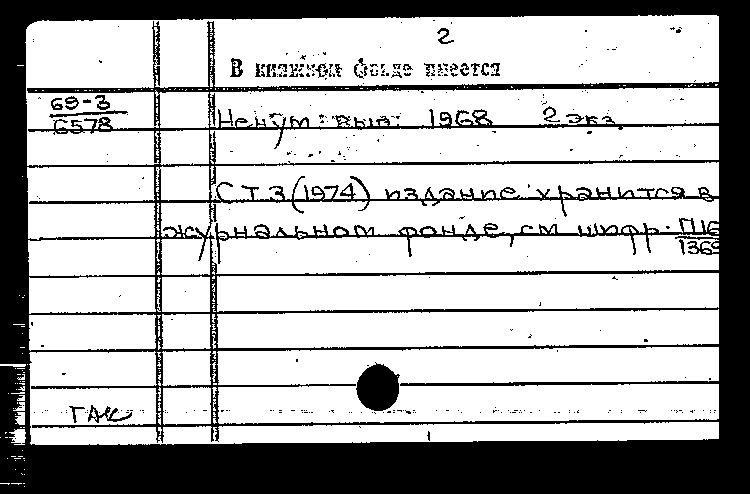 2
В книжном фонде имеется
69-3
6578
Ненум. вып. 1968 2 экз.
С Т. 3 (1974) издание хранится в
журнальном фонде, см шифр. П16
1369
ГАК